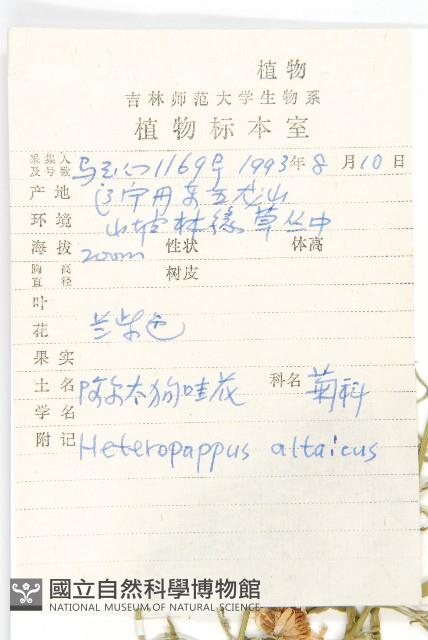 植物
吉林师范大学生物系
植物标本室
采集人及号数 1169号 1993年8月10日
产地 辽宁丹东五龙山
环境 山坡林缘草丛中
海拔 200m 性状 体高
胸高直径 树皮
叶
花 兰紫色
果实
土名 阿尔太狗哇花 科名 菊科
学名
附记 Heteropappus altaicus
國立自然科學博物館
NATIONAL MUSEUM OF NATURAL SCIENCE